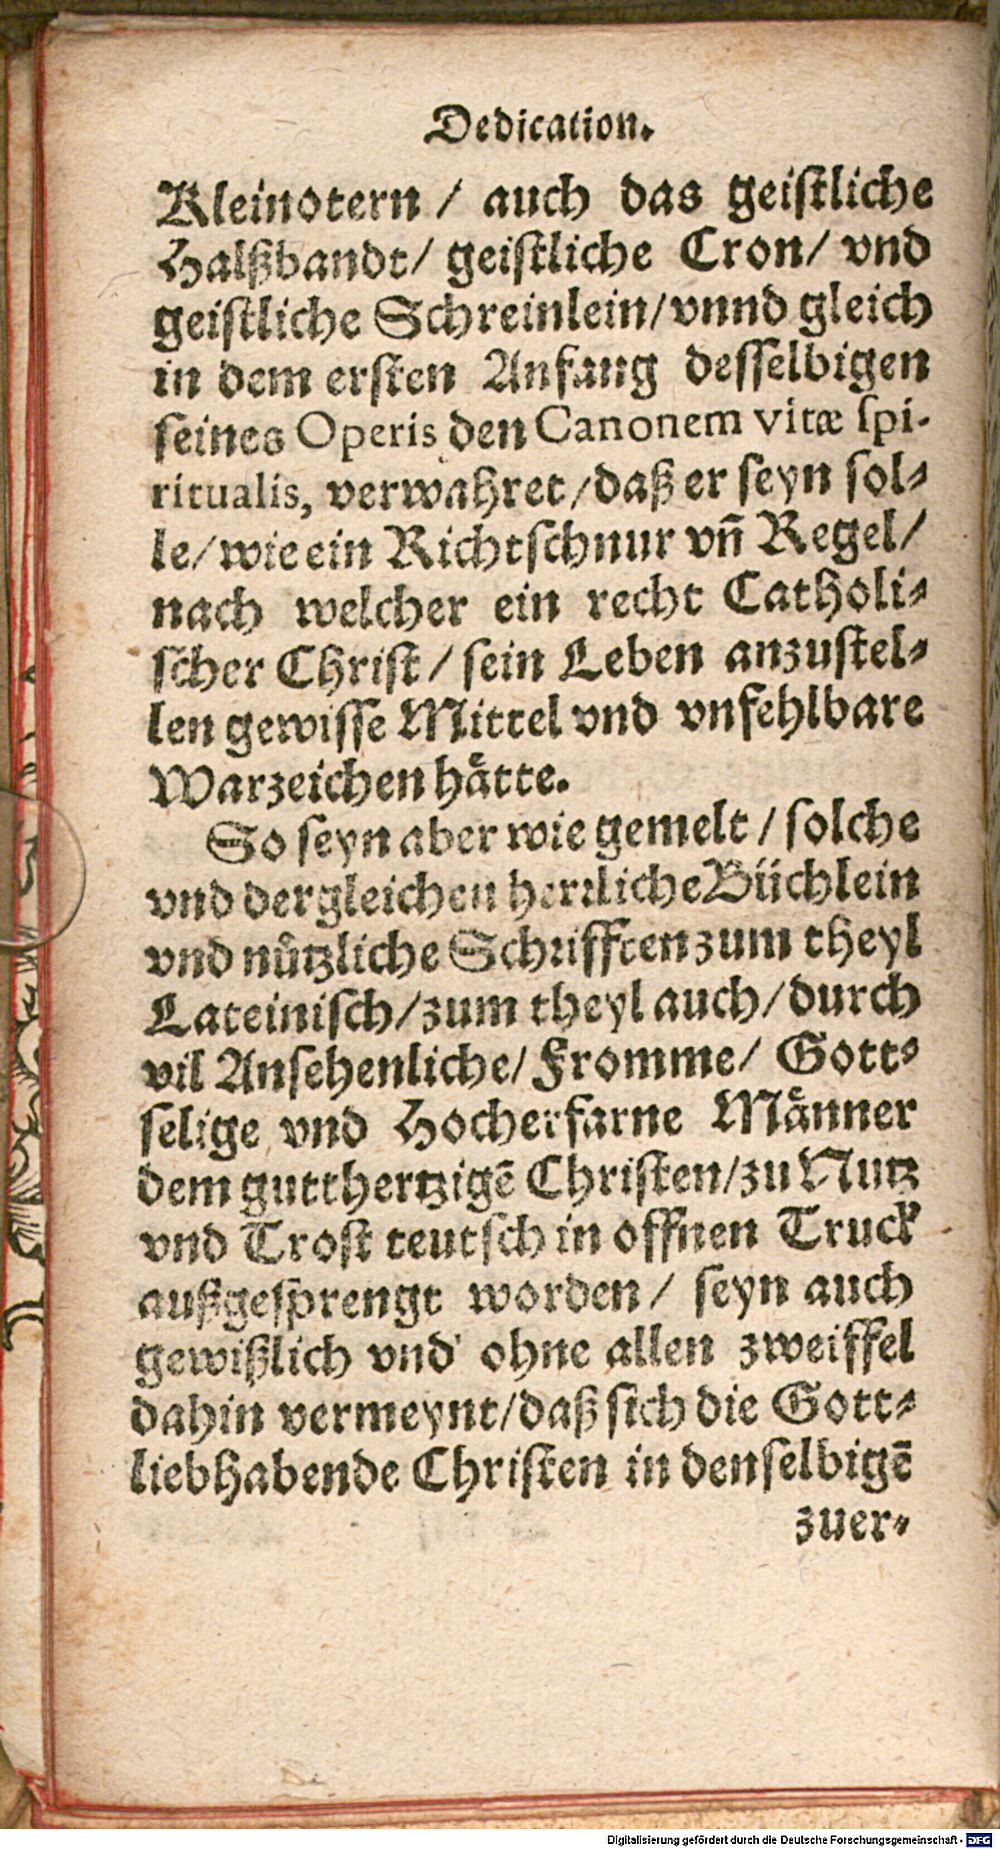 Dedication.
Kleinotern / auch das geistliche
Halßbandt/ geistliche Cron/ vnd
geistliche Schreinlein/vnnd gleich
in dem ersten Anfang desselbigen
seines Operis den Canonem vitæ spi-
ritualis, verwahret/daß er seyn sol-
le/wie ein Richtschnur vñ Regel/
nach welcher ein recht Catholi-
scher Christ/ sein Leben anzustel-
len gewisse Mittel vnd vnfehlbare
Warzeichen håtte.
So seyn aber wie gemelt / solche
vnd dergleichen herrliche Büchlein
vnd nůtzliche Schrifften zum theyl
Lateinisch/zum theyl auch/durch
vil Ansehenliche/Fromme/ Gott-
selige vnd Hocherfarne Männer
dem gutthertzigẽ Christen/zu Nutz
vnd Trost teutsch in offnen Truck
außgesprengt worden/ seyn auch
gewißlich vnd ohne allen zweiffel
dahin vermeynt/daß sich die Gott-
liebhabende Christen in denselbigẽ
zuer-
Digitalisierung gefördert durch die Deutsche Forschungsgemeinschaft - DFG